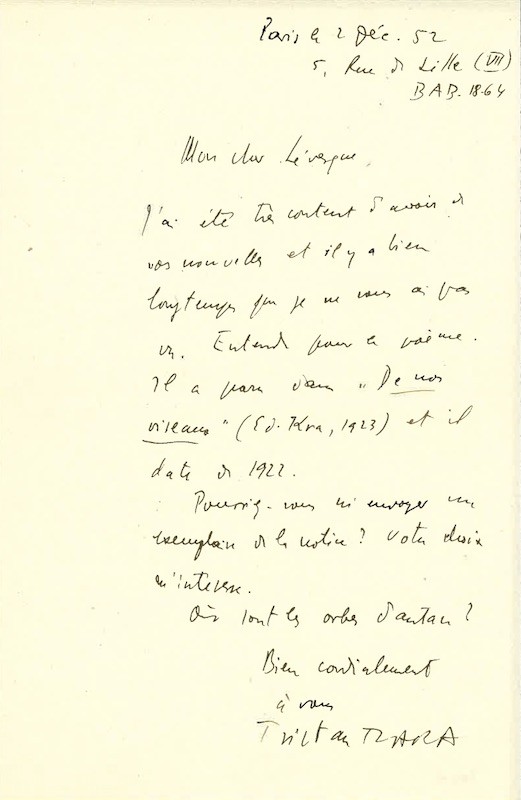 Paris le 2 Déc. 52
5, Rue de Lille (VII)
BAB. 18.64
Mon cher Lévesque,
J'ai été très content d'avoir de
vos nouvelles et il y a bien
longtemps que je ne vous ai pas
vu. Entendu pour le poème.
Il a paru dans "De nos
oiseaux" (Ed. Kra, 1923) et il
date de 1922.
Pourriez-vous m'envoyer un
exemplaire de la notice? Votre choix
m'intéresse.
Où sont les orbes d'antan?
Bien cordialement
à vous
Tristan TZARA